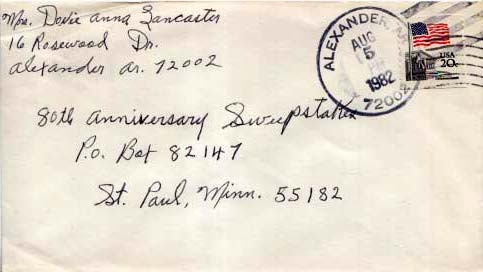 Mrs. Dovie Anna Lancaster
16 Rosewood Dr.
Alexander Ar. 72002
ALEXANDER, AR
AUG
5
1982
72002
USA
20c
80th Anniversary Sweepstakes
P.O. Box 82147
St. Paul, Minn. 55182